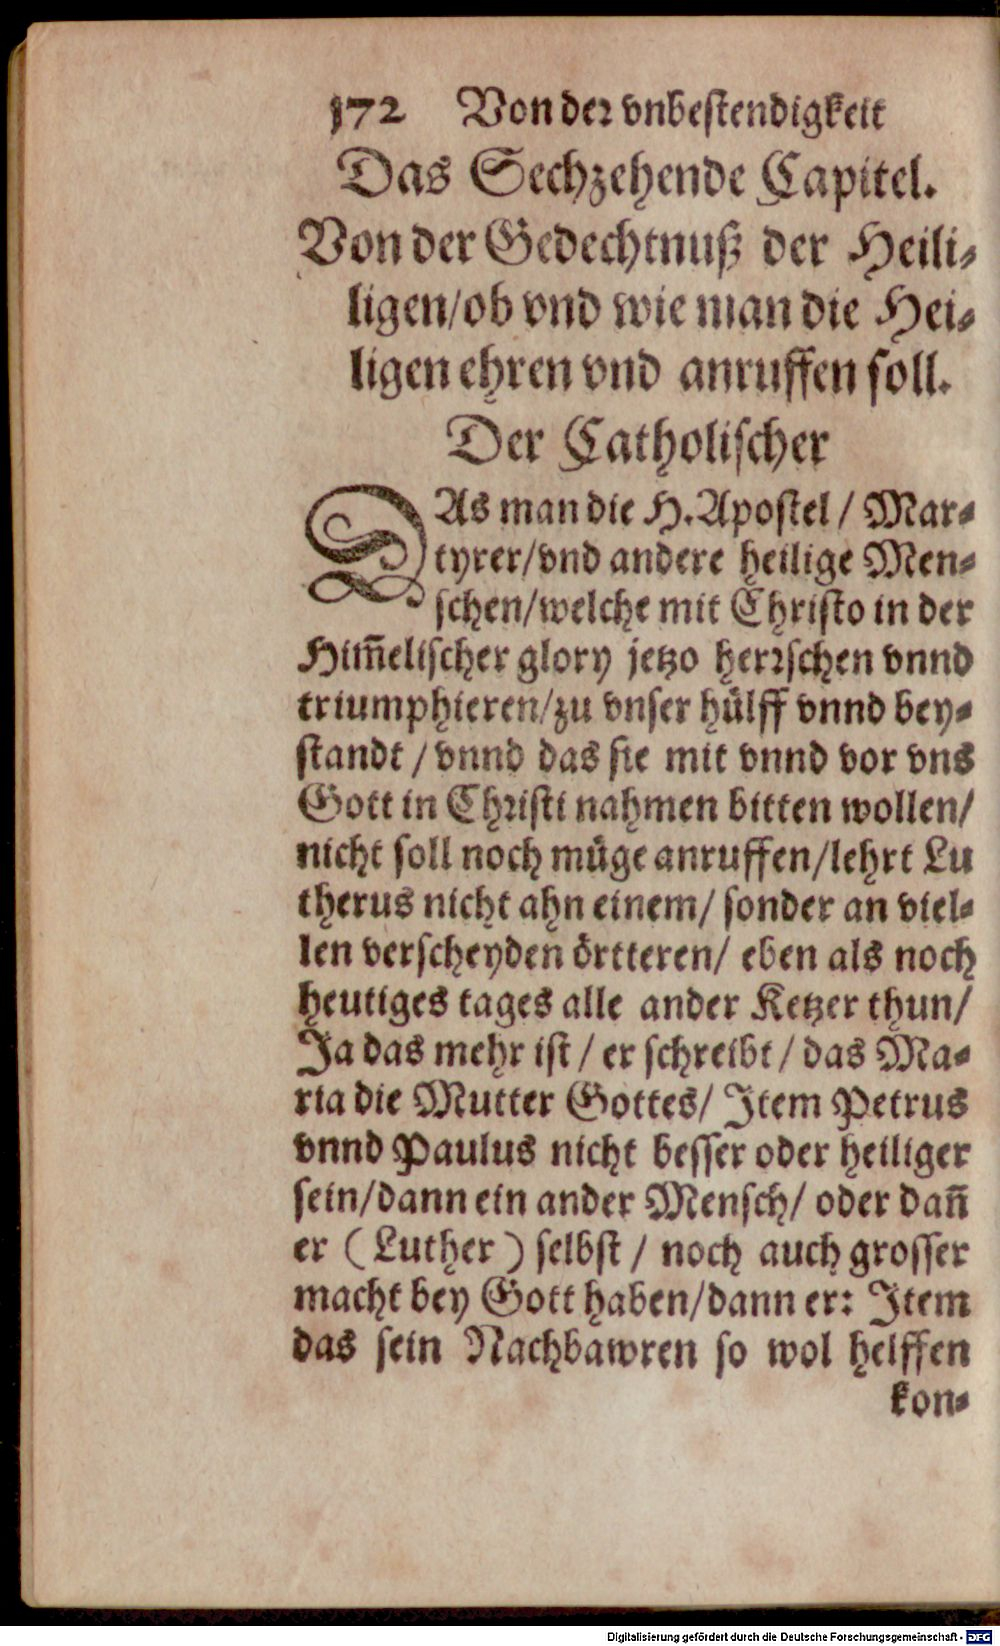 172 Von der vnbestendigkeit
Das Sechzehende Capitel.
Von der Gedechtnuß der Heili-
ligen/ob vnd wie man die Hei-
ligen ehren vnd anruffen soll.
Der Catholischer
DAs man die H. Apostel / Mar-
tyrer/vnd andere heilige Men-
schen/welche mit Christo in der
Him̃elischer glory jetzo herrschen vnnd
triumphieren/zu vnser hülff vnnd bey-
standt / vnnd das sie mit vnnd vor vns
Gott in Christi nahmen bitten wollen/
nicht soll noch müge anruffen/lehrt Lu
therus nicht ahn einem/ sonder an viel-
len verscheyden örtteren/ eben als noch
heutiges tages alle ander Ketzer thun/
Ja das mehr ist / er schreibt / das Ma-
ria die Mutter Gottes/ Item Petrus
vnnd Paulus nicht besser oder heiliger
sein/dann ein ander Mensch/ oder dañ
er (Luther) selbst / noch auch grosser
macht bey Gott haben/dann er: Item
das sein Nachbawren so wol helffen
kon-
Digitalisierung gefördert durch die Deutsche Forschungsgemeinschaft - DFG